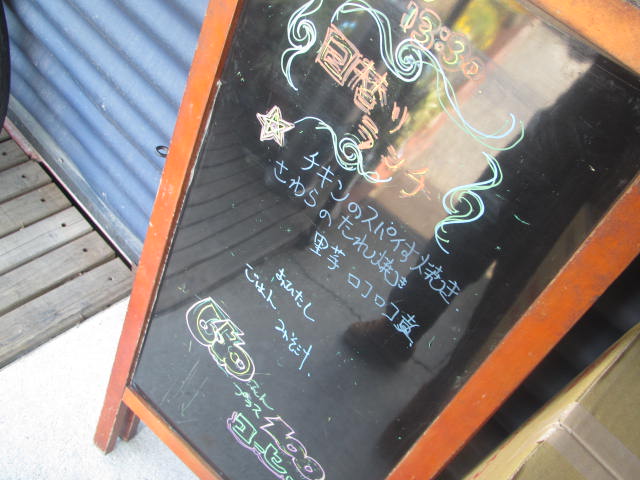 13:30
日替り
ランチ
チキンのスパイす焼き
さわらのたれ焼き
里芋 ロコロコ煮
おひたし
ごはん みそ汁
650
プラス 100
コーヒ